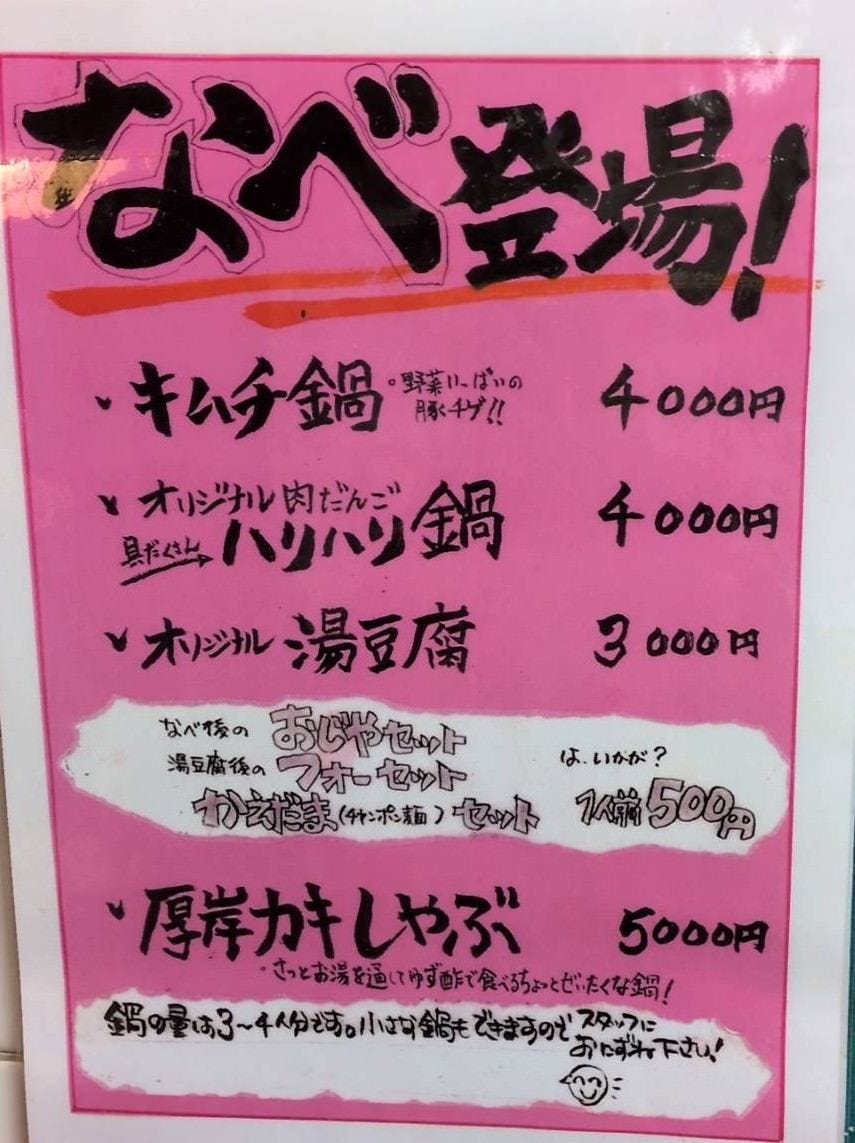 なべ登場!
・キムチ鍋 ・野菜いっぱいの豚チゲ!! 4000円
・オリジナル肉だんご
具だくさん→ハリハリ鍋 4000円
・オリジナル 湯豆腐 3000円
なべ後の おじやセット
湯豆腐後の フォーセット は、いかが?
かえだま(チャンポン麺)セット 1人前500円
・厚岸カキしゃぶ 5000円
・さっとお湯を通してゆず酢で食べるちょっとぜいたくな鍋!
鍋の量は3〜4人分です。小さな鍋もできますのでスタッフに
おたずね下さい!